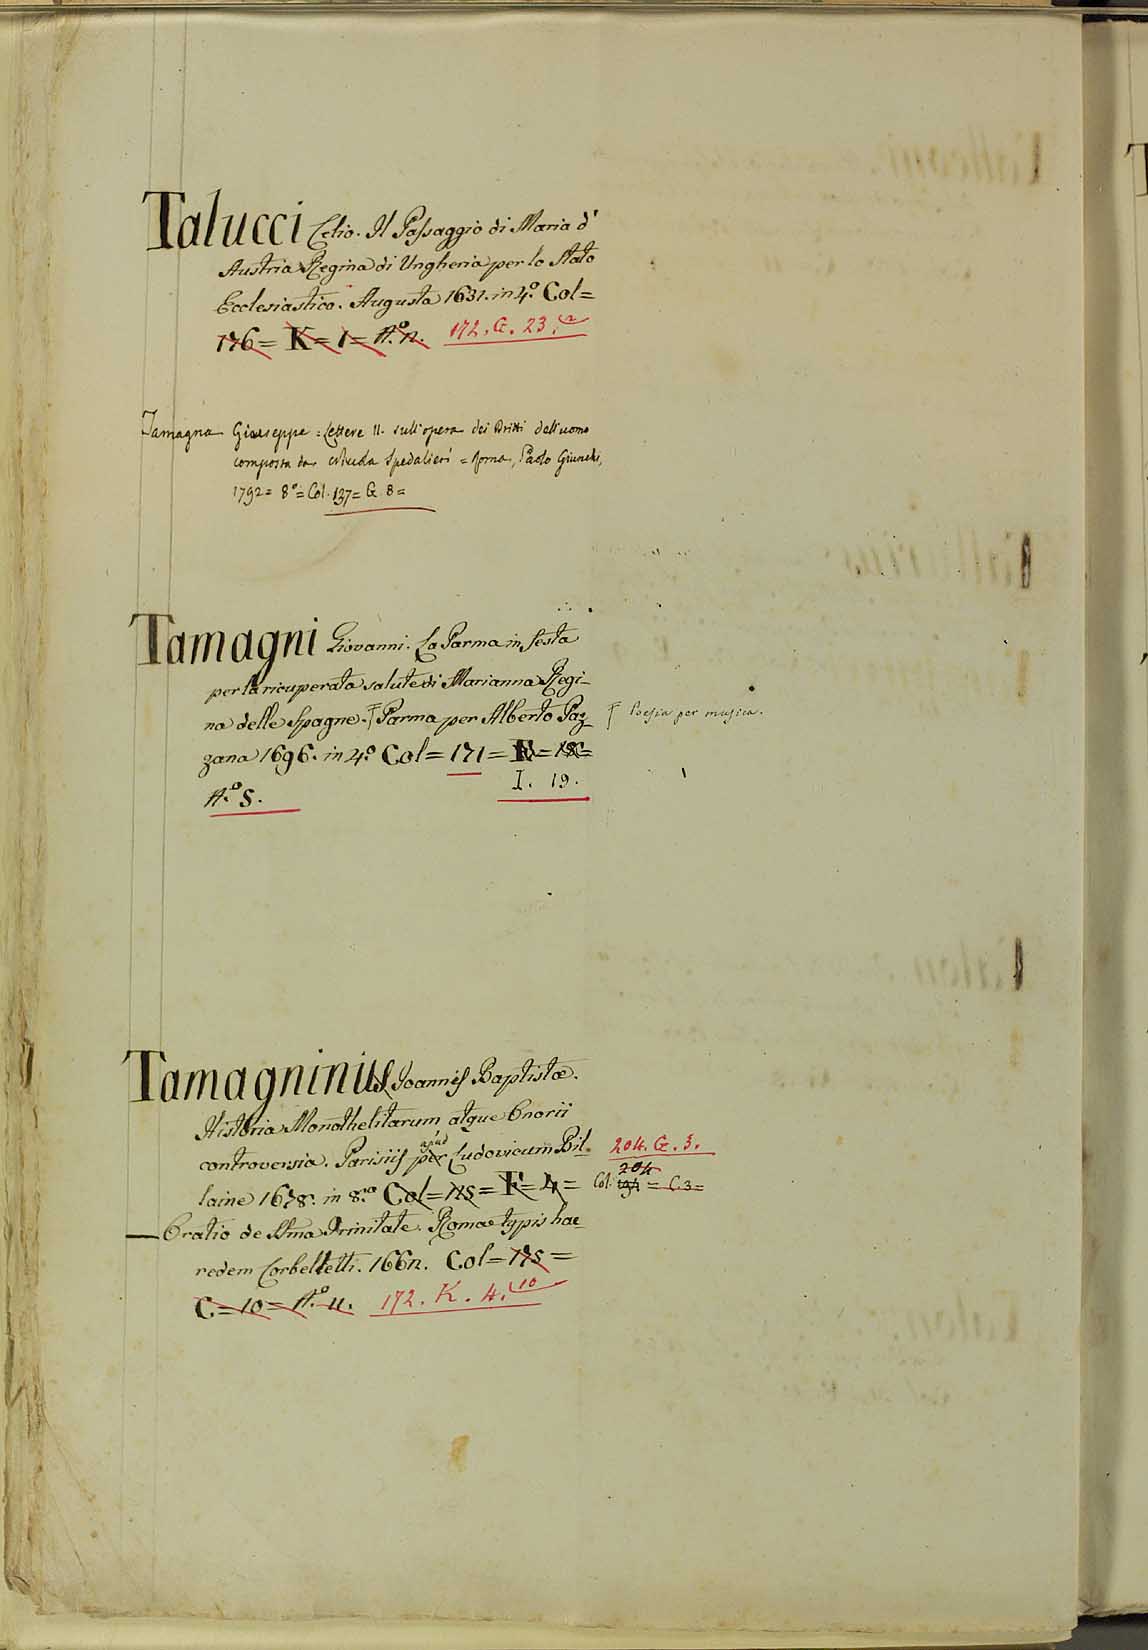 Talucci Celio. Il Passaggio di Maria d'
Austria Regina di Ungheria per lo Stato
Ecclesiastico. Augusta 1631. in 4.º Col=
176= K= 1= N.º 12. 172. G. 23.
Tamagna Giuseppe = Lettere II. sull'opera dei Dritti dell'uomo
composta da Spedalieri = Roma, Paolo Giunchi,
1792= 8º= Col. 137= G. 8=
Tamagni Giovanni. La Parma in festa
per la ricuperata salute di Marianna Regi-
na delle Spagne. Parma per Alberto Paz-
zana 1696. in 4.º Col= 171=
Poesia per musica.
I. 19.
N.º 5.
Tamagninius Joannis Baptistæ.
Historia Monothelitarum atque Onorii
controversia. Parisiis per apud Ludovicum Bil-
204. G. 3.
laine 1678. in 8.vo Col= 175= F= 4=
Col. 204 = C. 3=
— Oratio de SSma Trinitate. Romæ typis hæ-
redem Corbelletti. 1662. Col= 175=
C= 10= N.º 11. 172. K. 4. 10